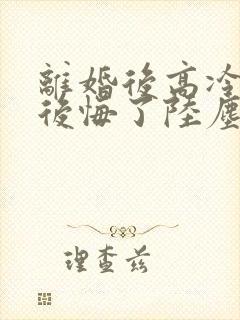 離婚後高冷
後悔了陸塵
理查茲